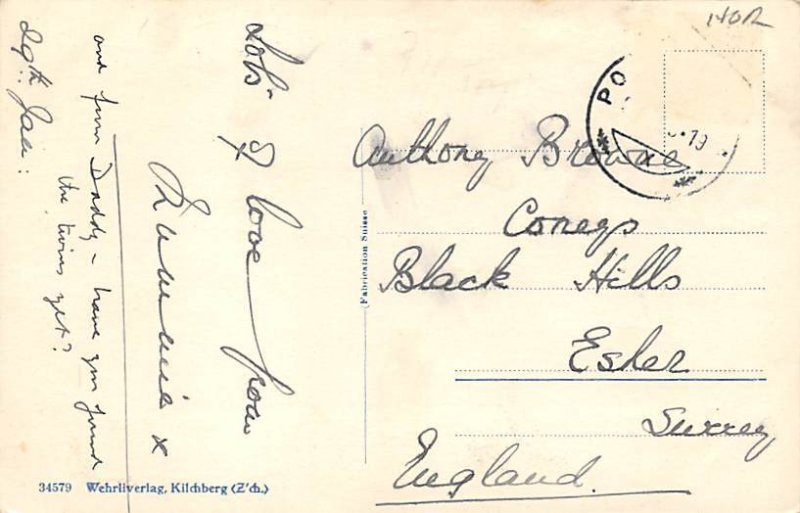 29th Jan:
Lots of love from
Mummie x
and from Daddy - have you found
the twins yet?
Anthony Browne
Black Hills
Esher
Surrey
England.
Fabrication Suisse
34579 Wehrliverlag, Kilchberg (Z'ch.)
PO
19